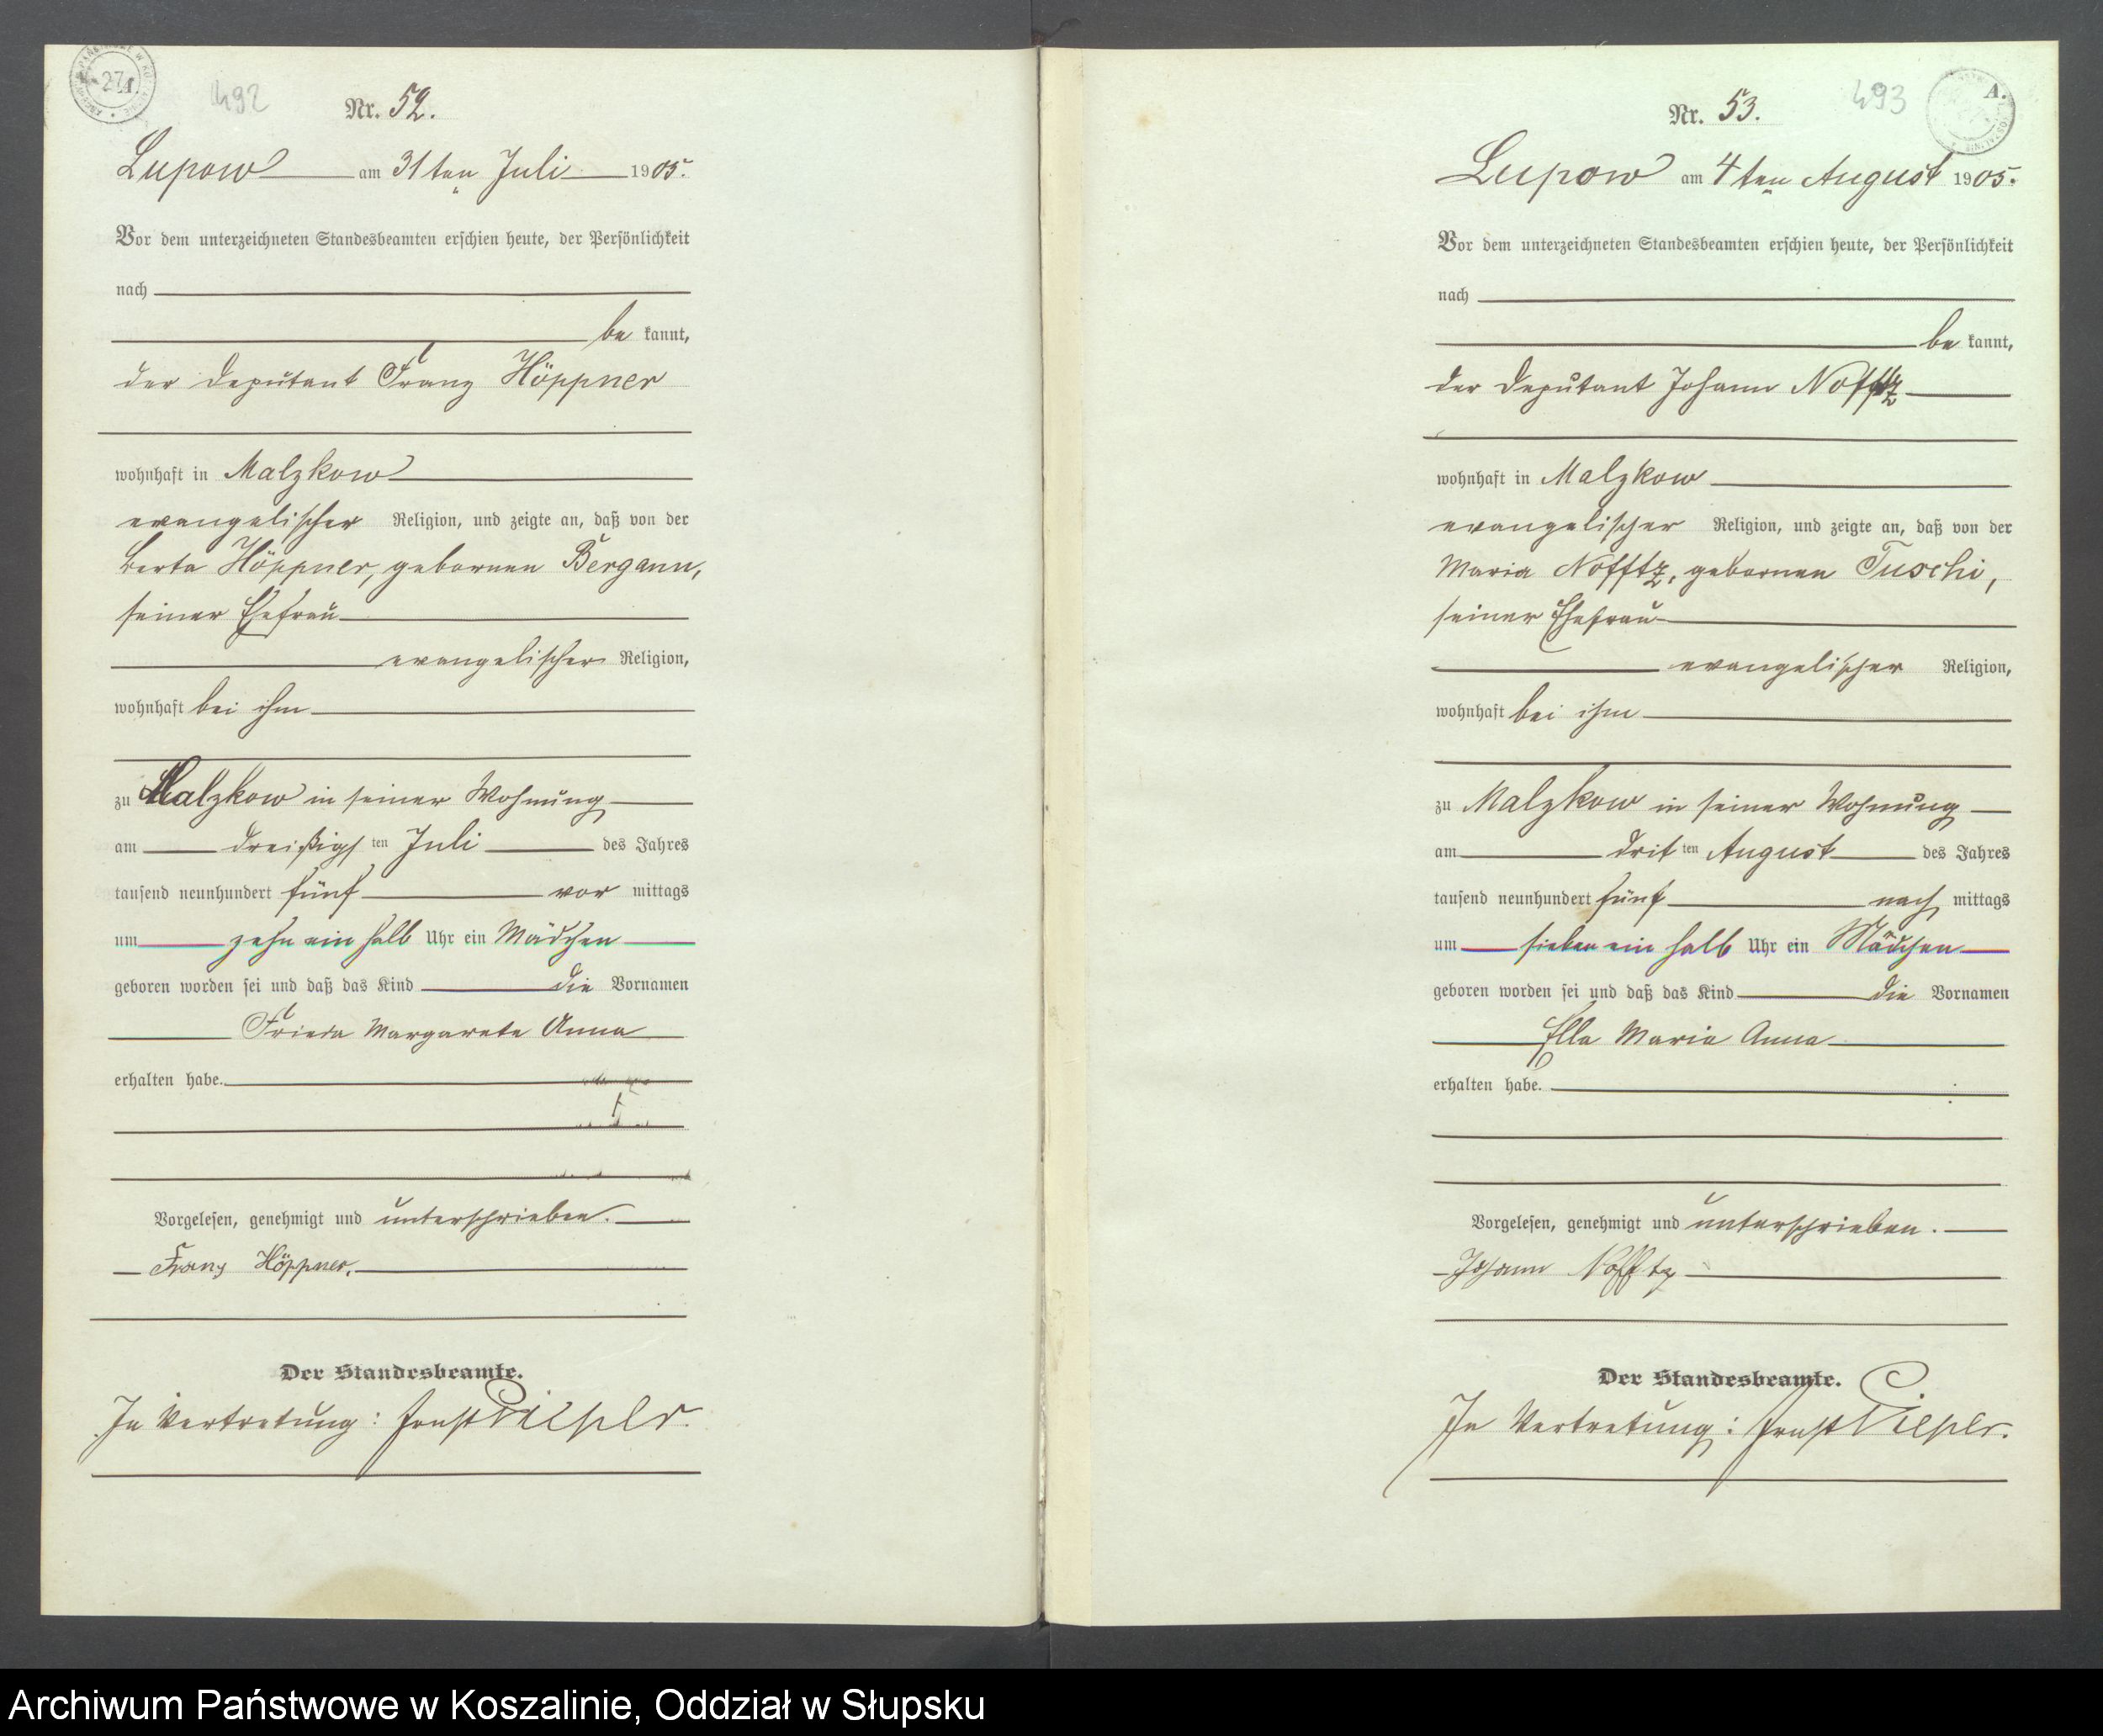 492
Nr. 52.
Lupow am 31ten Juli 1905.
Vor dem unterzeichneten Standesbeamten erschien heute, der Persönlichkeit
nach
be kannt,
der Deputant Franz Höppner
wohnhaft in Malzkow
evangelischer Religion, und zeigte an, daß von der
Berta Höppner, gebornen Bergann,
seiner Ehefrau
evangelischer Religion,
wohnhaft bei ihm
zu Malzkow in seiner Wohnung
am dreißigs ten Juli des Jahres
tausend neunhundert fünf vor mittags
um zehn ein halb Uhr ein Mädchen
geboren worden sei und daß das Kind die Vornamen
Frieda Margarete Anna
erhalten habe.
Vorgelesen, genehmigt und unterschrieben.
Franz Höppner.
Der Standesbeamte.
In Vertretung: Ernst Piepler.
493
A.
Nr. 53.
Lupow am 4ten August 1905.
Vor dem unterzeichneten Standesbeamten erschien heute, der Persönlichkeit
nach
be kannt,
der Deputant Johann Nofftz
wohnhaft in Malzkow
evangelischer Religion, und zeigte an, daß von der
Maria Nofftz, gebornen Tuschi,
seiner Ehefrau
evangelischer Religion,
wohnhaft bei ihm
zu Malzkow in seiner Wohnung
am drit ten August des Jahres
tausend neunhundert fünf nach mittags
um sieben ein halb Uhr ein Mädchen
geboren worden sei und daß das Kind die Vornamen
Ella Maria Anna
erhalten habe.
Vorgelesen, genehmigt und unterschrieben.
Johann Nofftz
Der Standesbeamte.
In Vertretung: Ernst Piepler.
Archiwum Państwowe w Koszalinie, Oddział w Słupsku